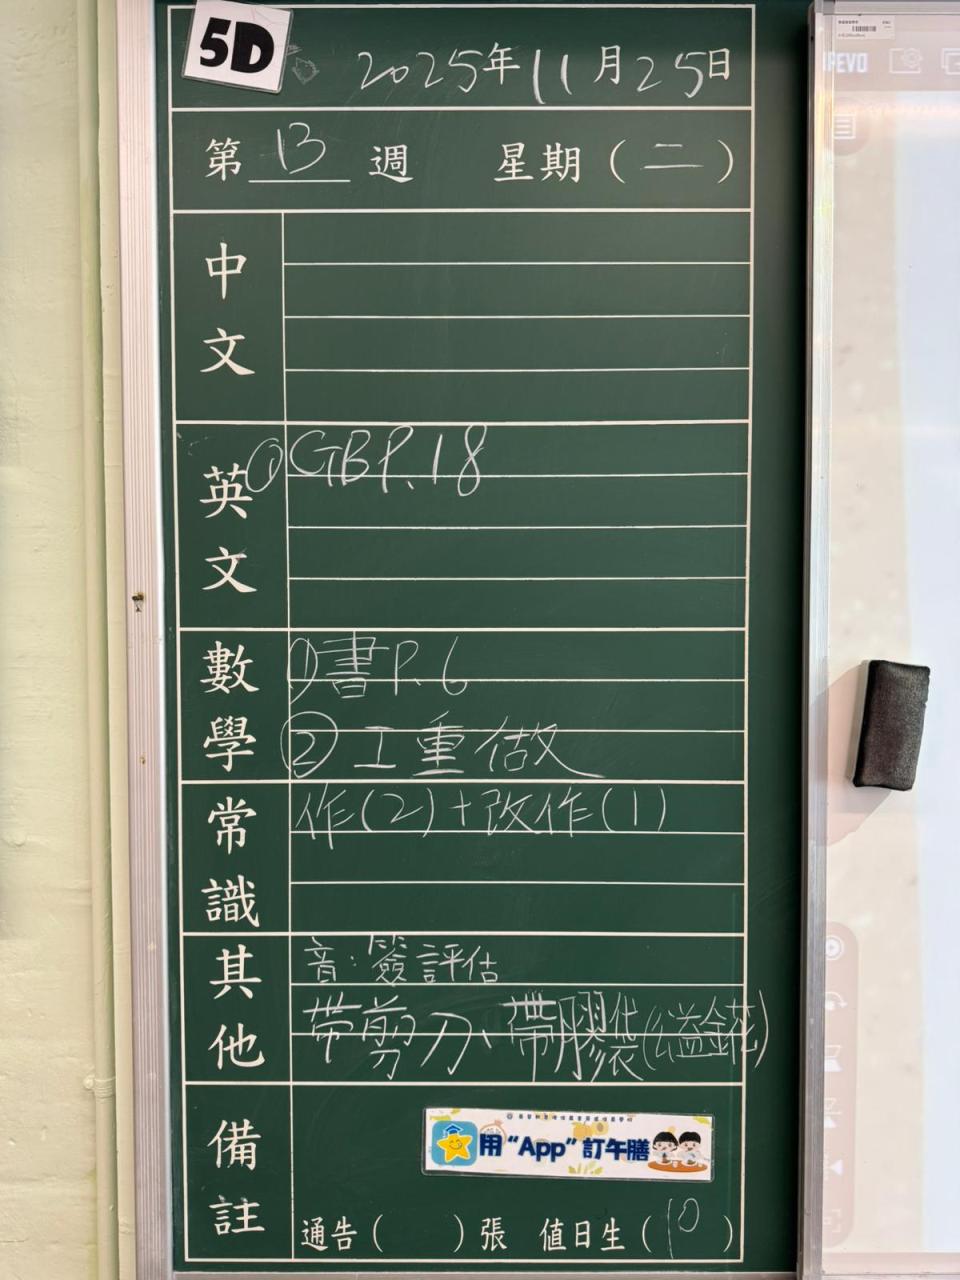 5D
2025年11月25日
第 13 週 星期(二)
中文
英文
① GB P.18
數學
① 書 P.6
② 工重做
常識
作(2)+改作(1)
其他
音:簽評估
帶剪刀、帶膠袋(
備註
用“App”訂午膳
通告( )張 值日生(10)